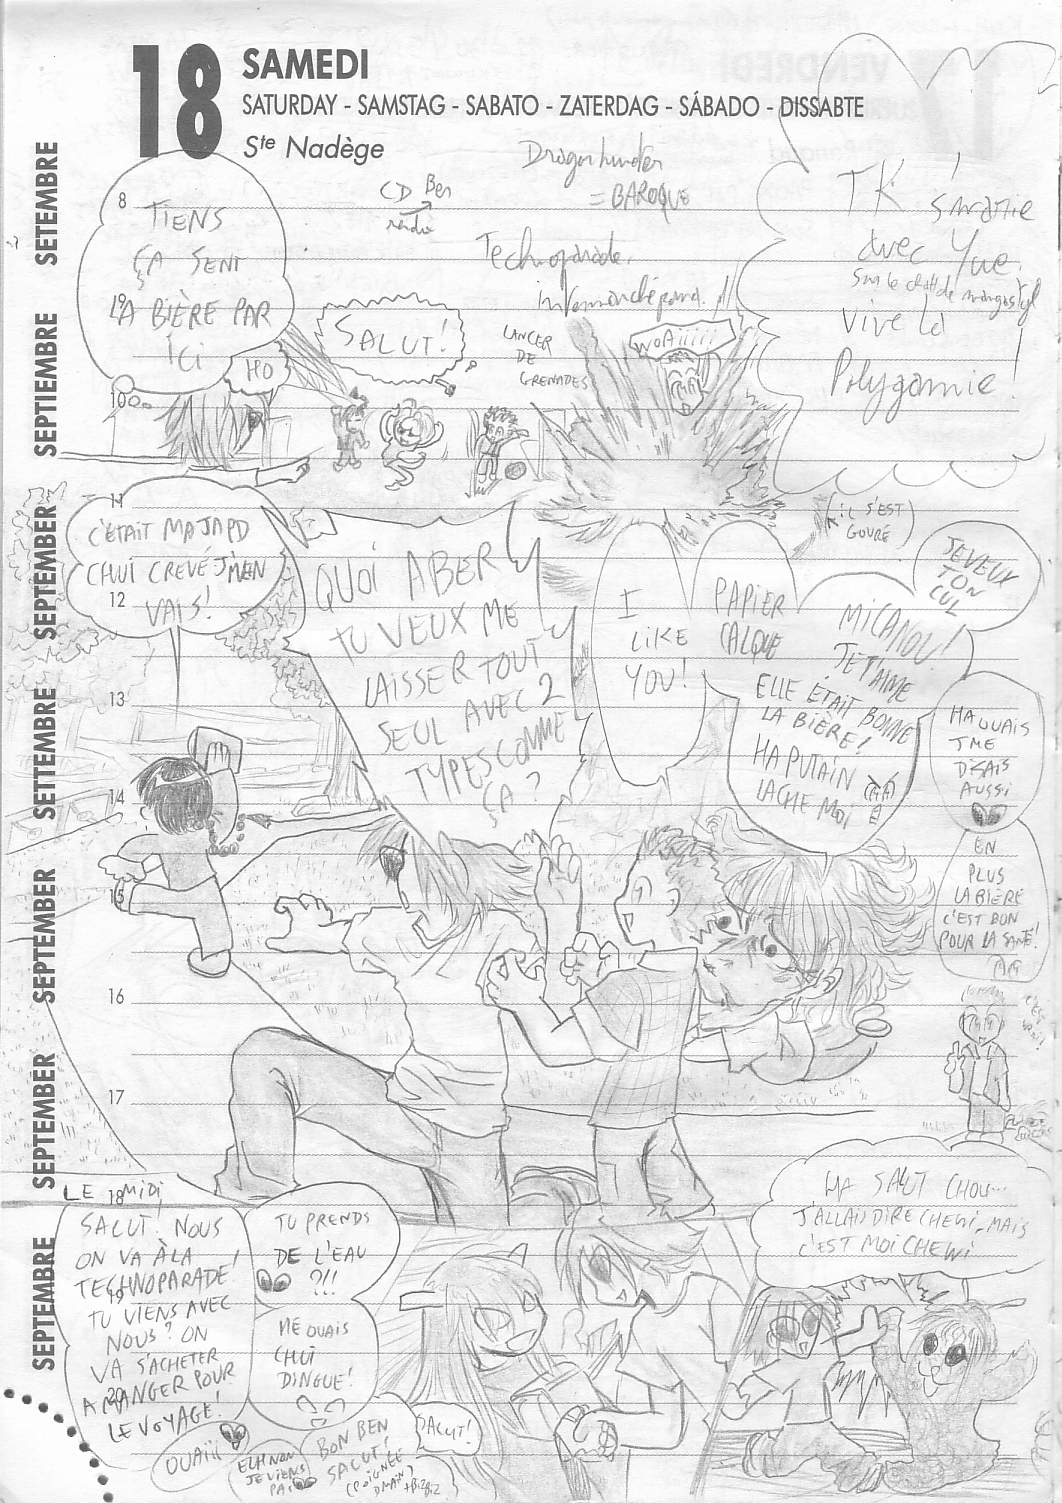 18
SAMEDI
SATURDAY - SAMSTAG - SABATO - ZATERDAG - SÁBADO - DISSABTE
Ste Nadège
SETEMBRE
SEPTIEMBRE
SEPTEMBER
SETTEMBRE
SEPTEMBER
SEPTEMBER
SEPTEMBRE
8
TIENS
ÇA SENT
LA BIÈRE PAR
ICI
HO
CD Ben
Dragonhunter
= BAROQUE
Technoparade
TK s'marie
avec Yue
Vive la
Polygamie !
SALUT !
LANCER
DE
GRENADES
WOAiiii
10
(IL S'EST
GOURÉ)
11
C'ÉTAIT MA JAPD
CHUI CREVÉ J'MEN
VAIS !
12
QUOI ABER
TU VEUX ME
LAISSER TOUT
SEUL AVEC 2
TYPES COMME
ÇA ?
I
LIKE
YOU !
PAPIER
CALQUE
MICANOU !
JE T'AIME
ELLE ÉTAIT BONNE
LA BIÈRE !
HA PUTAIN
LACHE MOI
JE VEUX
TON
CUL
HA OUAIS
J'ME
DISAIS
AUSSI
EN
PLUS
LA BIÈRE
C'EST BON
POUR LA SANTÉ !
13
14
15
16
17
18
LE MIDI
SALUT. NOUS
ON VA À LA
TECHNOPARADE !
TU VIENS AVEC
NOUS ? ON
VA S'ACHETER
A MANGER POUR
LE VOYAGE !
TU PRENDS
DE L'EAU
?!!
HÉ OUAIS
CHUI
DINGUE !
OUAII
EUH NON
JE VIENS
PAS
BON BEN
SALUT !
(POIGNÉE
DMAIN)
+BIZBIZ
SALUT !
HA SALUT CHOU...
J'ALLAI DIRE CHEWI, MAIS
C'EST MOI CHEWI